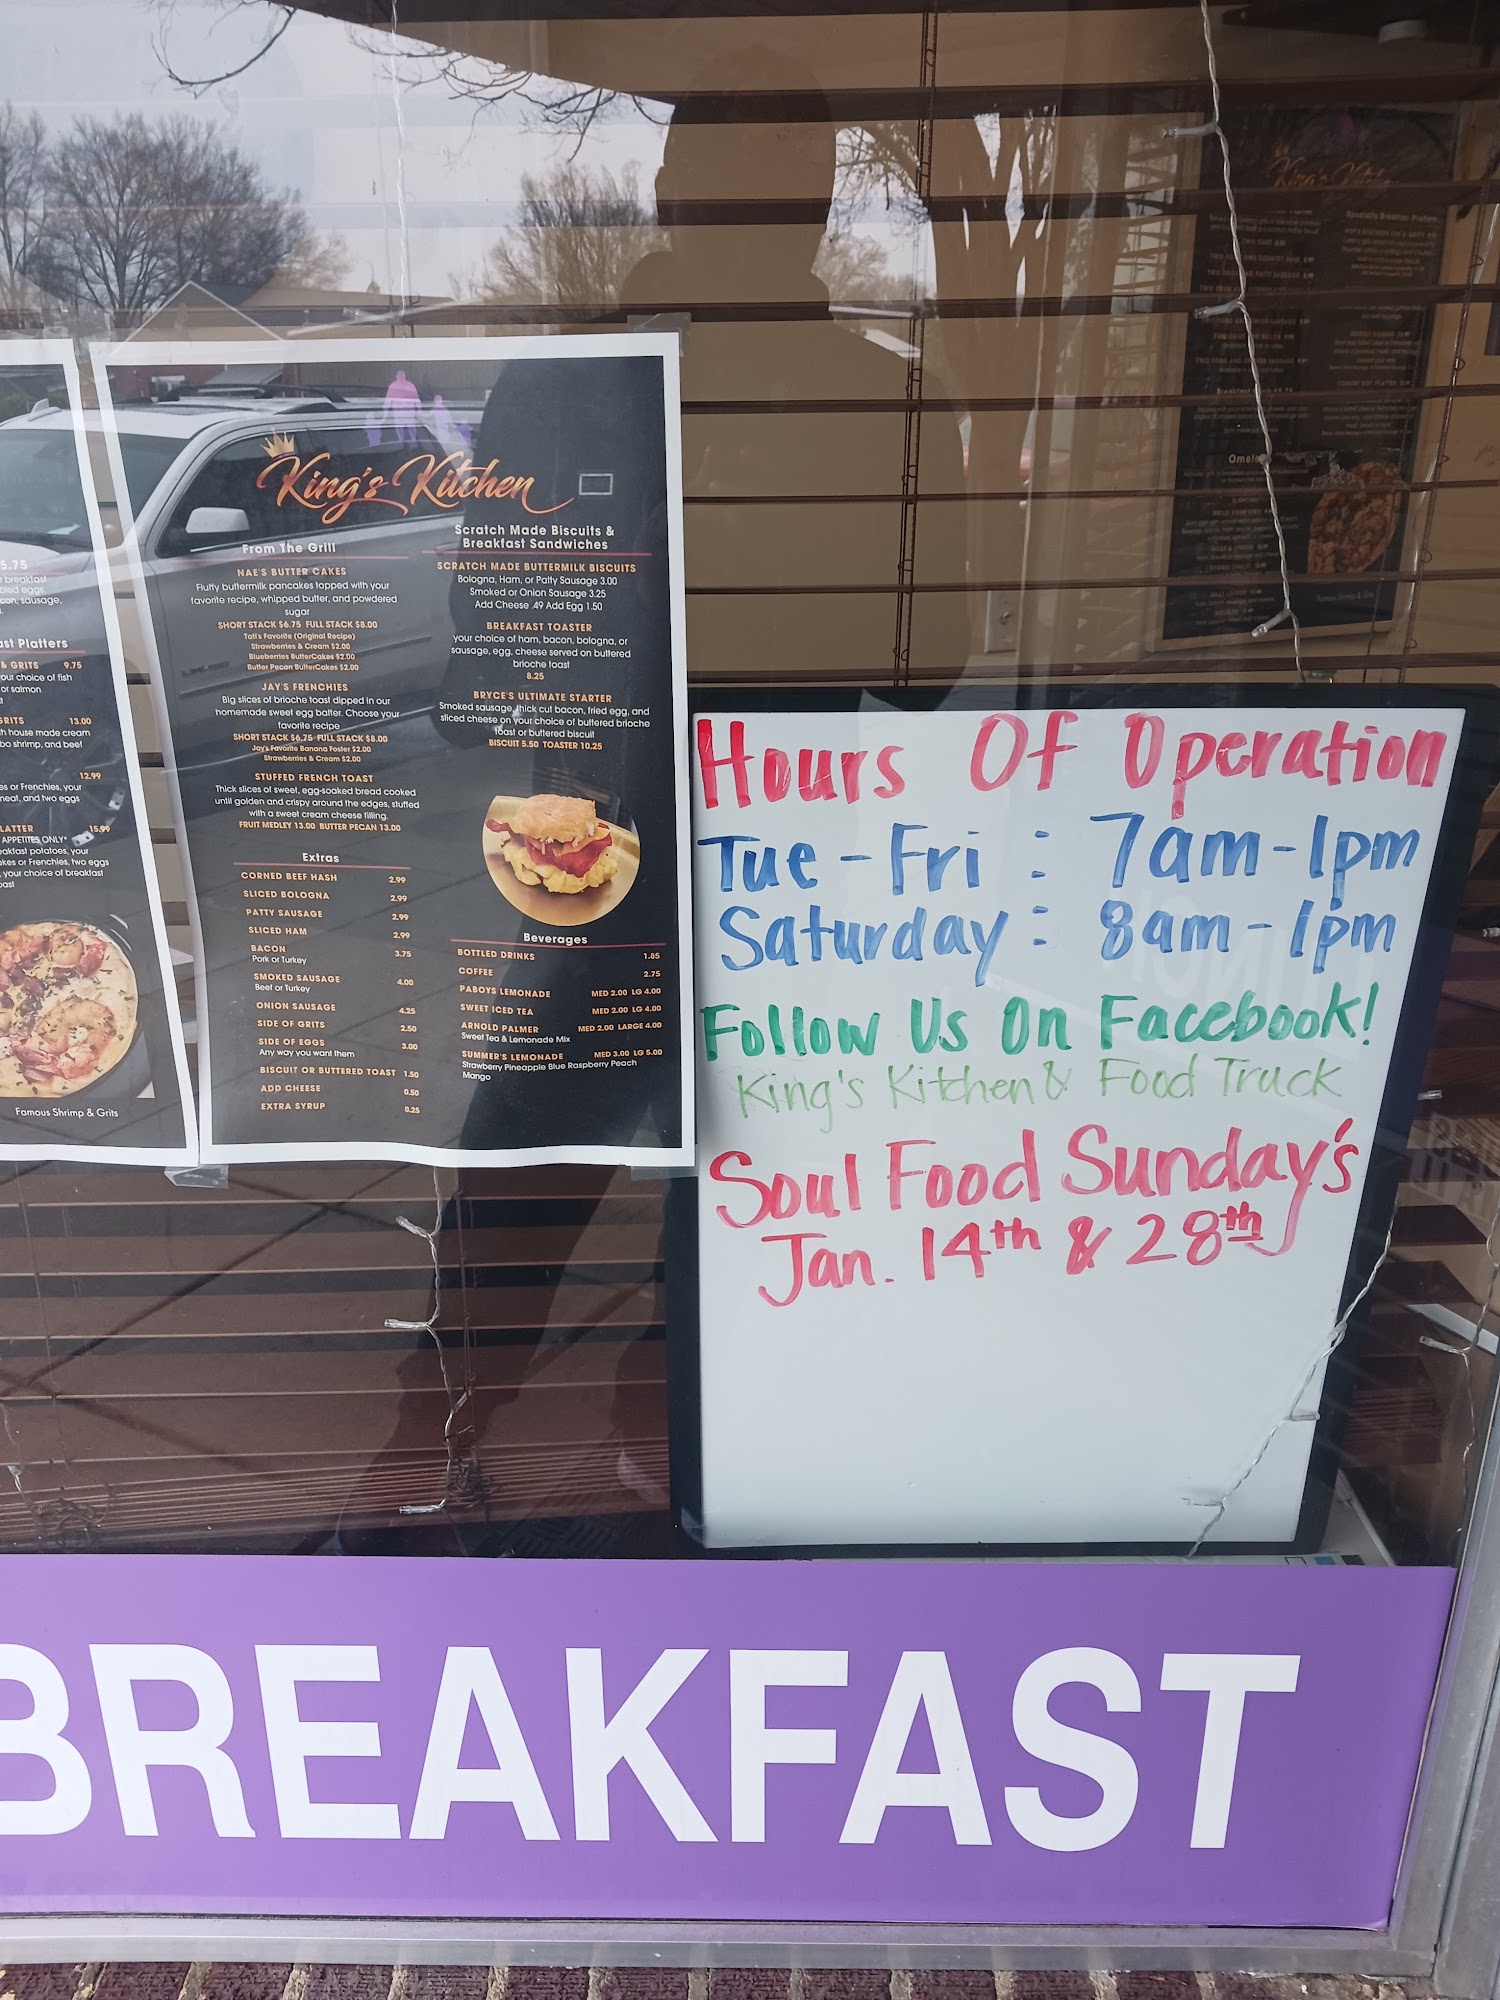 5.75
breakfast
bled eggs,
con, sausage,
ast Platters
& GRITS 9.75
our choice of fish
or salmon
GRITS 13.00
h house made cream
bo shrimp, and beef
12.99
es or Frenchies, your
meat, and two eggs
LATTER 15.99
APPETITES ONLY*
eakfast potatoes, your
akes or Frenchies, two eggs
, your choice of breakfast
oast
Famous Shrimp & Grits
King's Kitchen
From The Grill
NAE'S BUTTER CAKES
Fluffy buttermilk pancakes topped with your
favorite recipe, whipped butter, and powdered
sugar
SHORT STACK $6.75 FULL STACK $8.00
Tati's Favorite (Original Recipe)
Strawberries & Cream $2.00
Blueberries ButterCakes $2.00
Butter Pecan ButterCakes $2.00
JAY'S FRENCHIES
Big slices of brioche toast dipped in our
homemade sweet egg batter. Choose your
favorite recipe
SHORT STACK $6.75 FULL STACK $8.00
Jay's Favorite Banana Foster $2.00
Strawberries & Cream $2.00
STUFFED FRENCH TOAST
Thick slices of sweet, egg-soaked bread cooked
until golden and crispy around the edges, stuffed
with a sweet cream cheese filling.
FRUIT MEDLEY 13.00 BUTTER PECAN 13.00
Extras
CORNED BEEF HASH 2.99
SLICED BOLOGNA 2.99
PATTY SAUSAGE 2.99
SLICED HAM 2.99
BACON 3.75
Pork or Turkey
SMOKED SAUSAGE 4.00
Beef or Turkey
ONION SAUSAGE 4.25
SIDE OF GRITS 2.50
SIDE OF EGGS 3.00
Any way you want them
BISCUIT OR BUTTERED TOAST 1.50
ADD CHEESE 0.50
EXTRA SYRUP 0.25
Scratch Made Biscuits &
Breakfast Sandwiches
SCRATCH MADE BUTTERMILK BISCUITS
Bologna, Ham, or Patty Sausage 3.00
Smoked or Onion Sausage 3.25
Add Cheese .49 Add Egg 1.50
BREAKFAST TOASTER
your choice of ham, bacon, bologna, or
sausage, egg, cheese served on buttered
brioche toast
8.25
BRYCE'S ULTIMATE STARTER
Smoked sausage, thick cut bacon, fried egg, and
sliced cheese on your choice of buttered brioche
toast or buttered biscuit
BISCUIT 5.50 TOASTER 10.25
Beverages
BOTTLED DRINKS 1.85
COFFEE 2.75
PABOYS LEMONADE MED 2.00 LG 4.00
SWEET ICED TEA MED 2.00 LG 4.00
ARNOLD PALMER MED 2.00 LARGE 4.00
Sweet Tea & Lemonade Mix
SUMMER'S LEMONADE MED 3.00 LG 5.00
Strawberry Pineapple Blue Raspberry Peach
Mango
King's Kitchen
Specialty Breakfast Platters
Omele
Famous Shrimp & Grits
Hours Of Operation
Tue - Fri : 7am - 1pm
Saturday : 8am - 1pm
Follow Us On Facebook!
King's Kitchen & Food Truck
Soul Food Sunday's
Jan. 14th & 28th
BREAKFAST